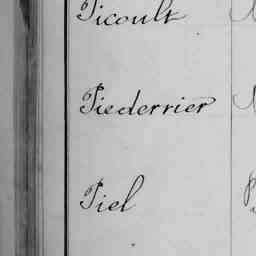 Picoult
Piederrier
Piel